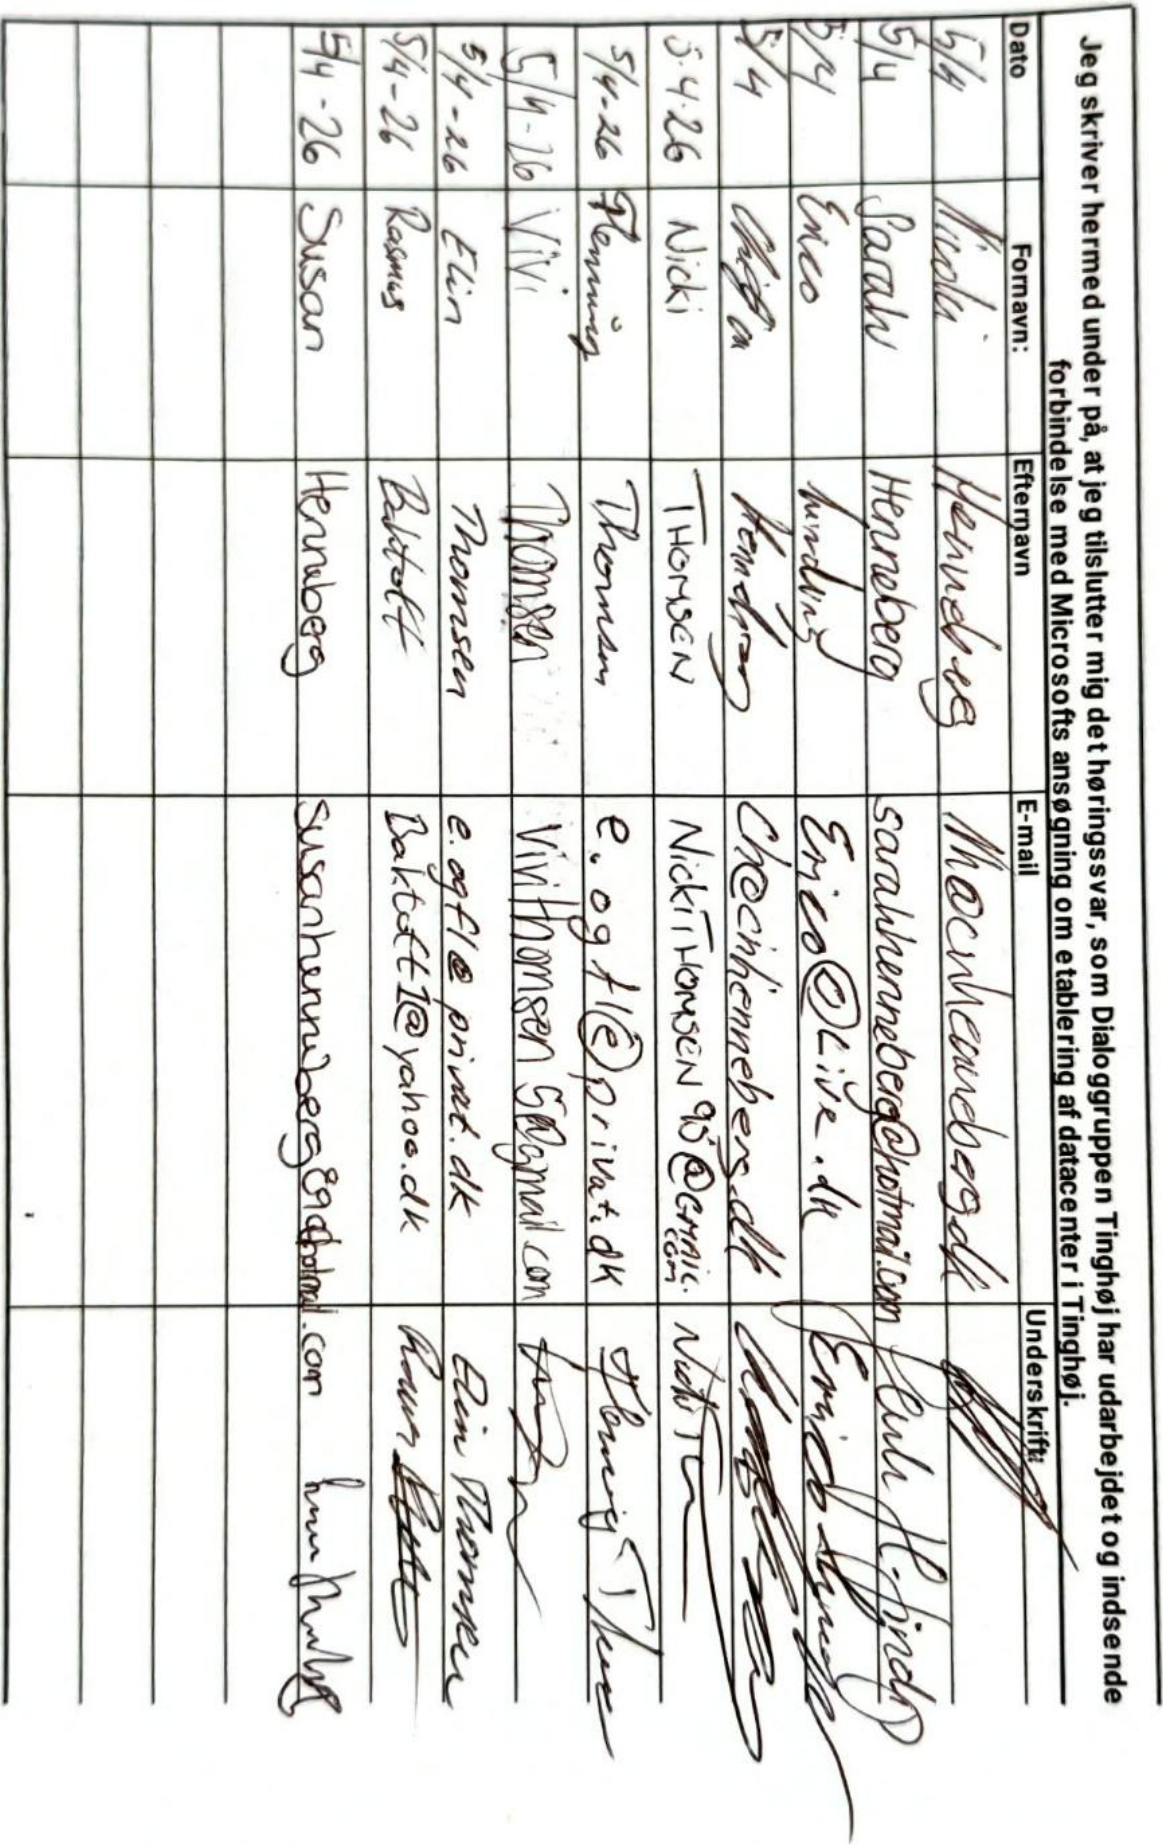 Jeg skriver hermed under på, at jeg tilslutter mig det høringssvar, som Dialoggruppen Tinghøj har udarbejdet og indsende
forbindelse med Microsofts ansøgning om etablering af datacenter i Tinghøj.
Dato Fornavn: Efternavn E-mail Underskrift:
5/4 Nicolai Henneberg
5/4 Sarah Henneberg sarahhenneberg@hotmail.com
5/4 Enico Enico@Live.dk
5/4 Ch@cnhenneberg.dk
5.4.26 Nicki THOMSEN NickiTHOMSEN95@GMAIL.com
5/4-26 Flemming Thomsen e.ogfl@privat.dk Flemming Thomsen
5/4-26 Vivi Thomsen Vivithomsen5@gmail.com
5/4-26 Elin Thomsen e.ogfl@privat.dk Elin Thomsen
5/4-26 Rasmus Baktoft Baktoft1@yahoo.dk
5/4-26 Susan Henneberg